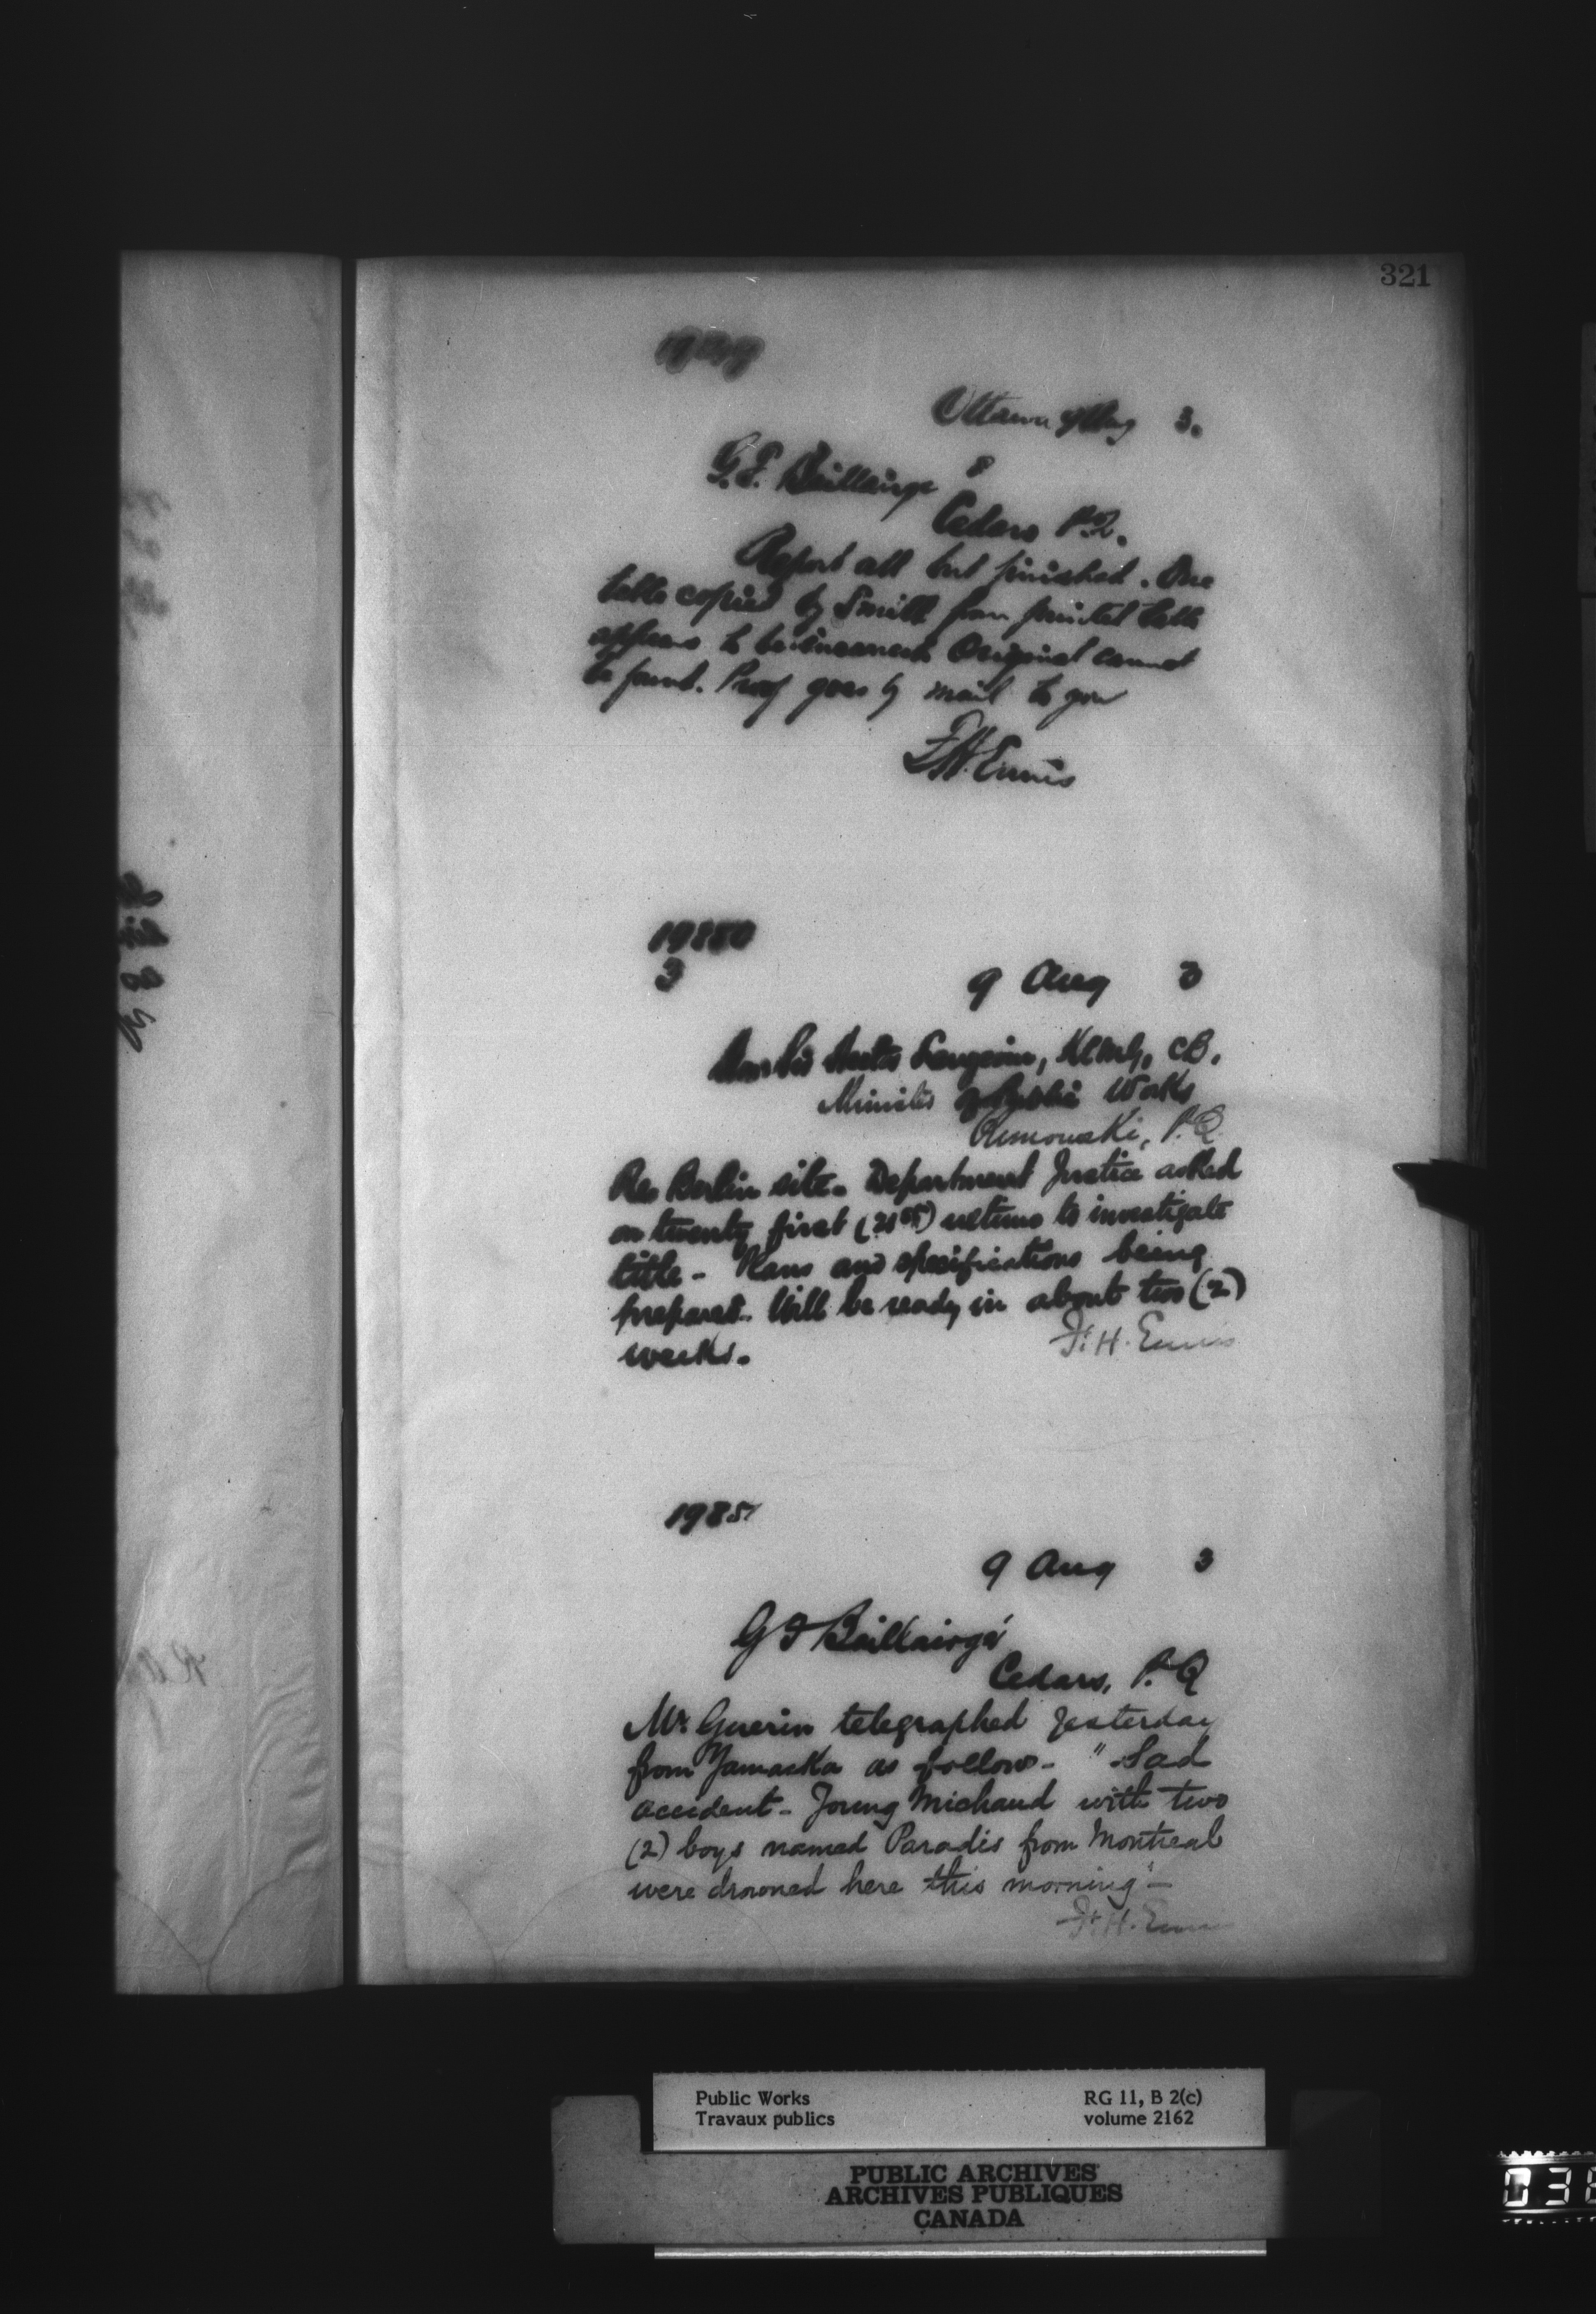 321
Ottawa 9 Aug 3.
G. F. Baillairgé
Cedars P.Q.
Report all but finished. One
table copied by Smith from printed table
appears to be inaccurate Original cannot
be found. Proof goes by mail to you
F.H. Ennis
19880
3
9 Aug 3
Hon Sir Hector Langevin, KCMG, CB.
Minister of Public Works
Rimouski, P.Q
Re Berlin site. Department Justice asked
on twenty first (21st) ultimo to investigate
title - Plans and specifications being
prepared. Will be ready in about two (2)
weeks.
F. H. Ennis
1985
9 Aug 3
G F Baillairgé
Cedars, P.Q
Mr. Guerin telegraphed yesterday
from Yamaska as follows - " Sad
accident - Young Michaud with two
(2) boys named Paradis from Montreal
were drowned here this morning" -
F. H. Ennis
Public Works RG 11, B 2(c)
Travaux publics volume 2162
PUBLIC ARCHIVES
ARCHIVES PUBLIQUES
CANADA